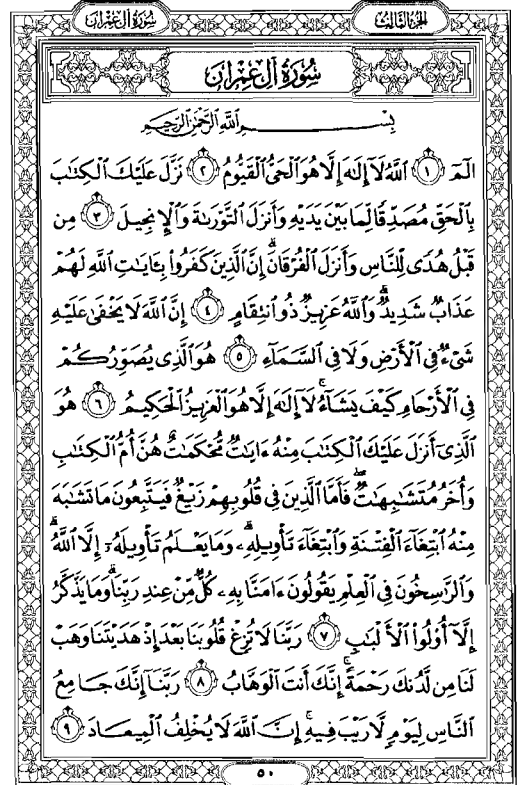 سُورَةُ آلِ عِمْرَان
الجُزءُ الثَّالِث
سُورَةُ آلِ عِمْرَان
بِسْمِ اللَّهِ الرَّحْمَٰنِ الرَّحِيمِ
الٓمٓ ١ ٱللَّهُ لَآ إِلَٰهَ إِلَّا هُوَ ٱلْحَىُّ ٱلْقَيُّومُ ٢ نَزَّلَ عَلَيْكَ ٱلْكِتَٰبَ
بِٱلْحَقِّ مُصَدِّقًا لِّمَا بَيْنَ يَدَيْهِ وَأَنزَلَ ٱلتَّوْرَىٰةَ وَٱلْإِنجِيلَ ٣ مِن
قَبْلُ هُدًى لِّلنَّاسِ وَأَنزَلَ ٱلْفُرْقَانَۗ إِنَّ ٱلَّذِينَ كَفَرُوا۟ بِـَٔايَٰتِ ٱللَّهِ لَهُمْ
عَذَابٌ شَدِيدٌۗ وَٱللَّهُ عَزِيزٌ ذُو ٱنتِقَامٍ ٤ إِنَّ ٱللَّهَ لَا يَخْفَىٰ عَلَيْهِ
شَىْءٌ فِى ٱلْأَرْضِ وَلَا فِى ٱلسَّمَآءِ ٥ هُوَ ٱلَّذِى يُصَوِّرُكُمْ
فِى ٱلْأَرْحَامِ كَيْفَ يَشَآءُۚ لَآ إِلَٰهَ إِلَّا هُوَ ٱلْعَزِيزُ ٱلْحَكِيمُ ٦ هُوَ
ٱلَّذِىٓ أَنزَلَ عَلَيْكَ ٱلْكِتَٰبَ مِنْهُ ءَايَٰتٌ مُّحْكَمَٰتٌ هُنَّ أُمُّ ٱلْكِتَٰبِ
وَأُخَرُ مُتَشَٰبِهَٰتٌۖ فَأَمَّا ٱلَّذِينَ فِى قُلُوبِهِمْ زَيْغٌ فَيَتَّبِعُونَ مَا تَشَٰبَهَ
مِنْهُ ٱبْتِغَآءَ ٱلْفِتْنَةِ وَٱبْتِغَآءَ تَأْوِيلِهِۦۗ وَمَا يَعْلَمُ تَأْوِيلَهُۥٓ إِلَّا ٱللَّهُۗ
وَٱلرَّٰسِخُونَ فِى ٱلْعِلْمِ يَقُولُونَ ءَامَنَّا بِهِۦ كُلٌّ مِّنْ عِندِ رَبِّنَاۗ وَمَا يَذَّكَّرُ
إِلَّآ أُو۟لُوا۟ ٱلْأَلْبَٰبِ ٧ رَبَّنَا لَا تُزِغْ قُلُوبَنَا بَعْدَ إِذْ هَدَيْتَنَا وَهَبْ
لَنَا مِن لَّدُنكَ رَحْمَةًۚ إِنَّكَ أَنتَ ٱلْوَهَّابُ ٨ رَبَّنَآ إِنَّكَ جَامِعُ
ٱلنَّاسِ لِيَوْمٍ لَّا رَيْبَ فِيهِۚ إِنَّ ٱللَّهَ لَا يُخْلِفُ ٱلْمِيعَادَ ٩
٥٠